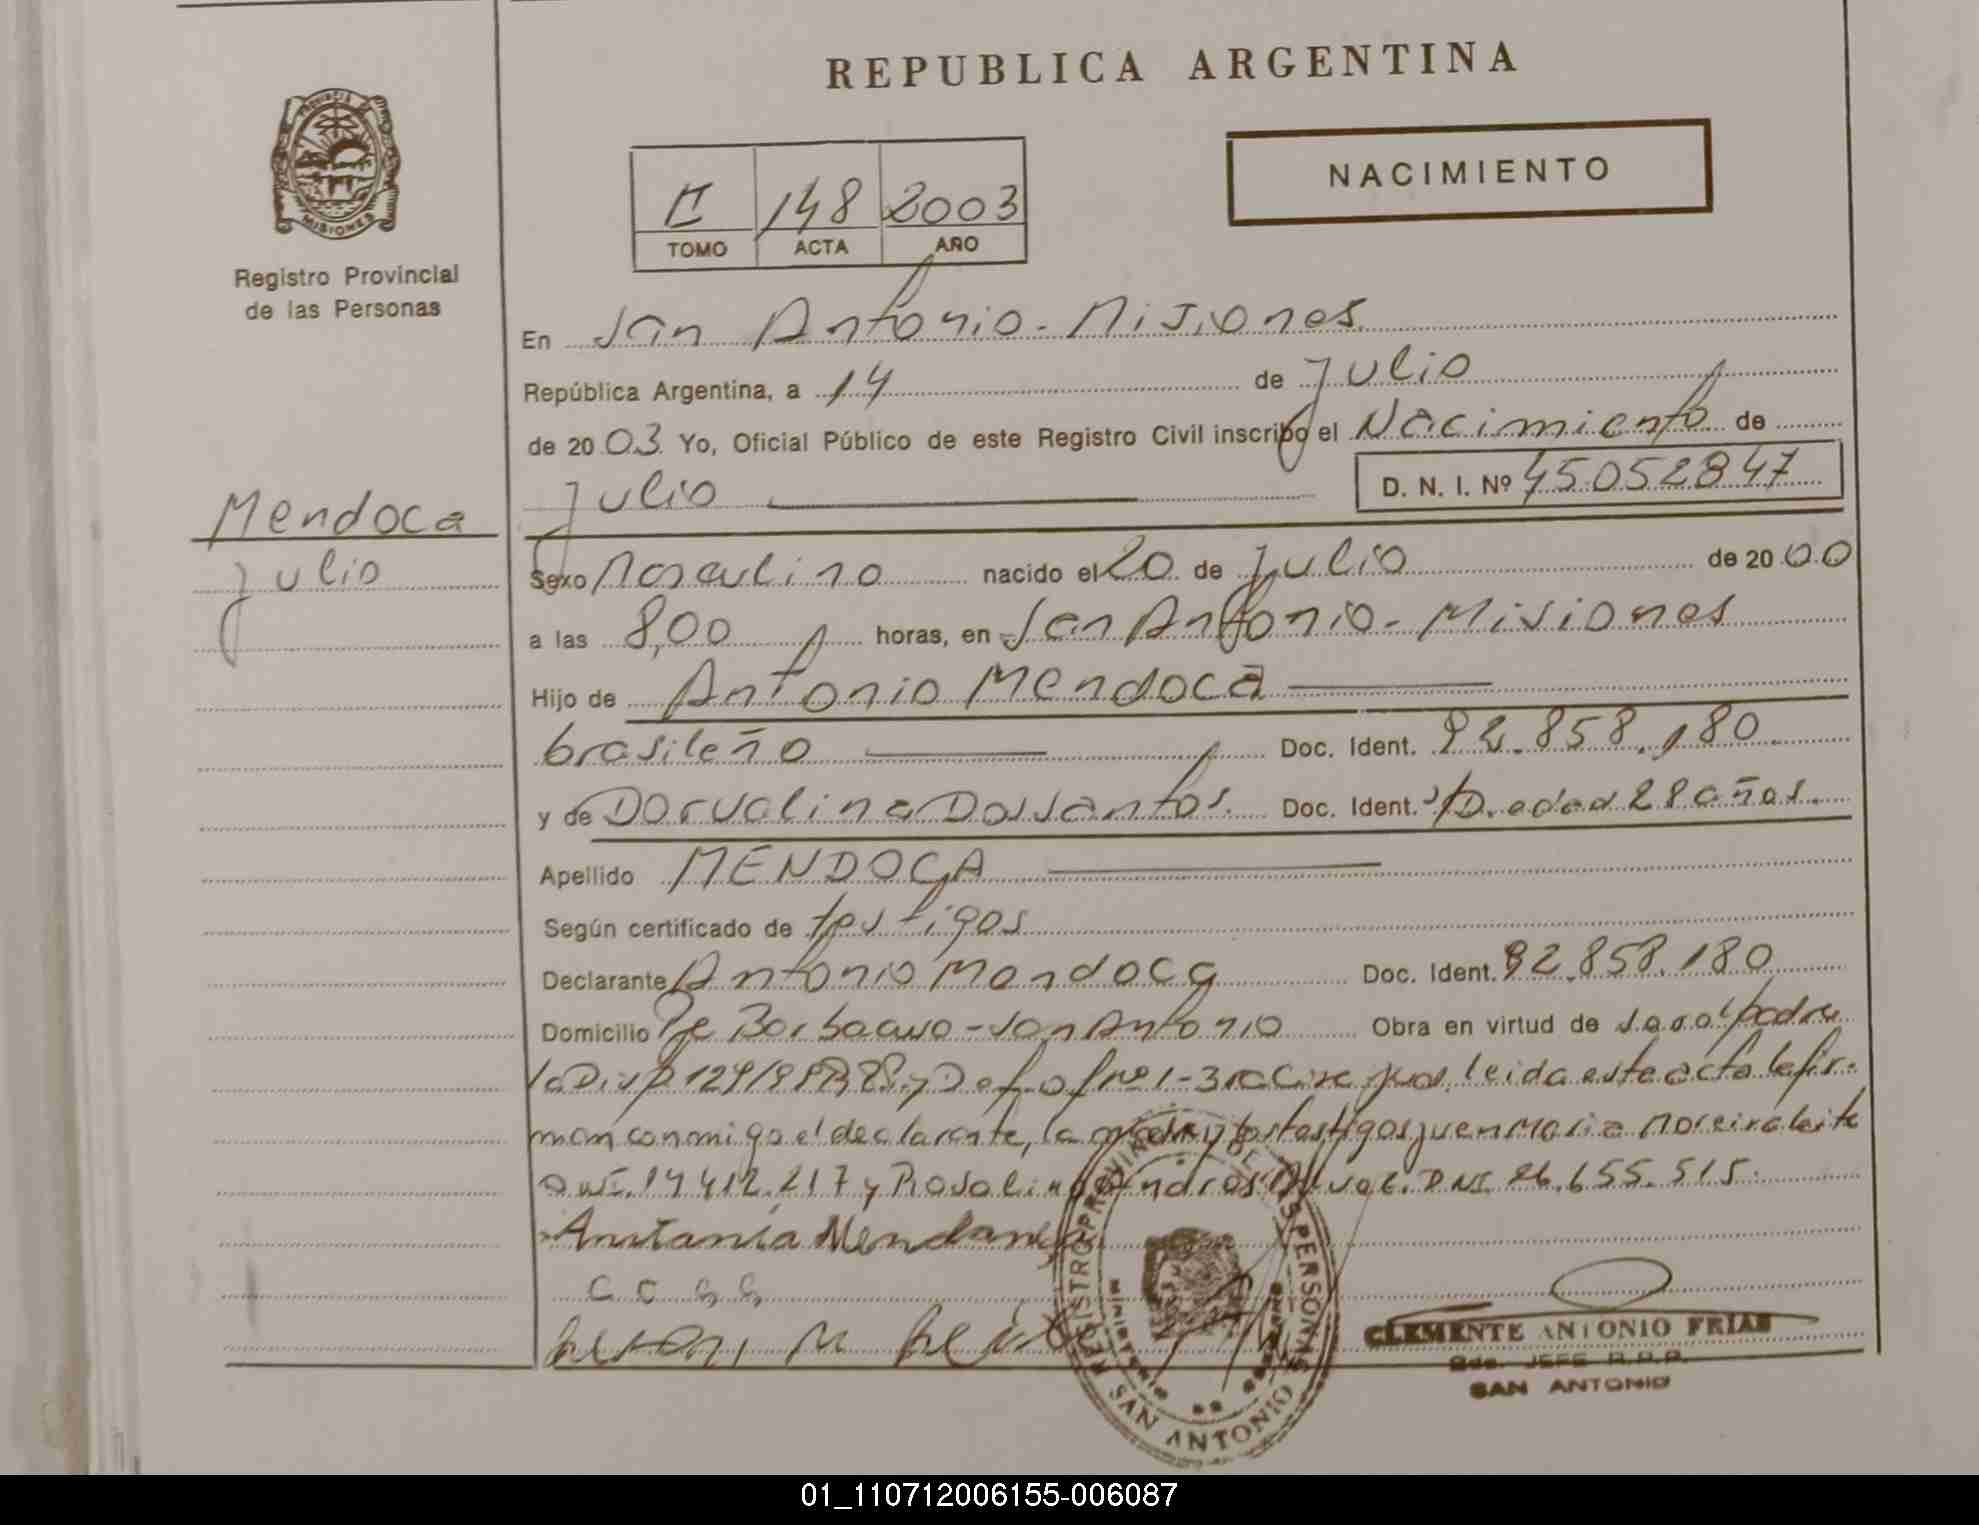 REPUBLICA ARGENTINA
NACIMIENTO
II 148 2003
TOMO ACTA AÑO
MISIONES
Registro Provincial
de las Personas
En San Antonio - Misiones
República Argentina, a 14 de Julio
de 2003 Yo, Oficial Público de este Registro Civil inscribo el Nacimiento de
Julio D. N. I. Nº 45052847
Mendoca
Julio
Sexo Masculino nacido el 20 de Julio de 2000
a las 8,00 horas, en San Antonio - Misiones
Hijo de Antonio Mendoca
brasileño Doc. Ident. 92.858.180
y de Dorvalina Dos Santos. Doc. Ident. edad 28 años.
Apellido MENDOCA
Según certificado de testigos
Declarante Antonio Mendoca Doc. Ident. 92.858.180
Domicilio Pje Barbacuo - San Antonio Obra en virtud de ser el padre
leida este acta la fir-
man conmigo el declarante, la madre y los testigos Juen Maria Moreira Leite
DNI. 14 412.217 y Rosalino DNI 26.655.515.
REGISTRO PROVINCIAL DE LAS PERSONAS
SAN ANTONIO
CLEMENTE ANTONIO FRIAS
JEFE R.P.P.
SAN ANTONIO
01_110712006155-006087